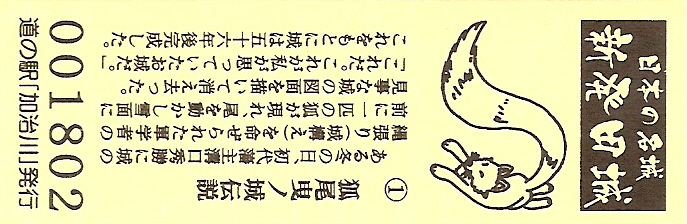 日本の名城
新発田城
① 狐尾曳ノ城伝説
ある冬の日、初代藩主溝口秀勝に城の
縄張り(城構え)を命ぜられた軍学者の
前に一匹の狐が現れ、尾を動かし雪面に
見事な城の図面を描いて消え去った。
「これだ。これが私が思っていたお城だ。」
これをもとに城は五十六年後完成した。
001802
道の駅「加治川」発行